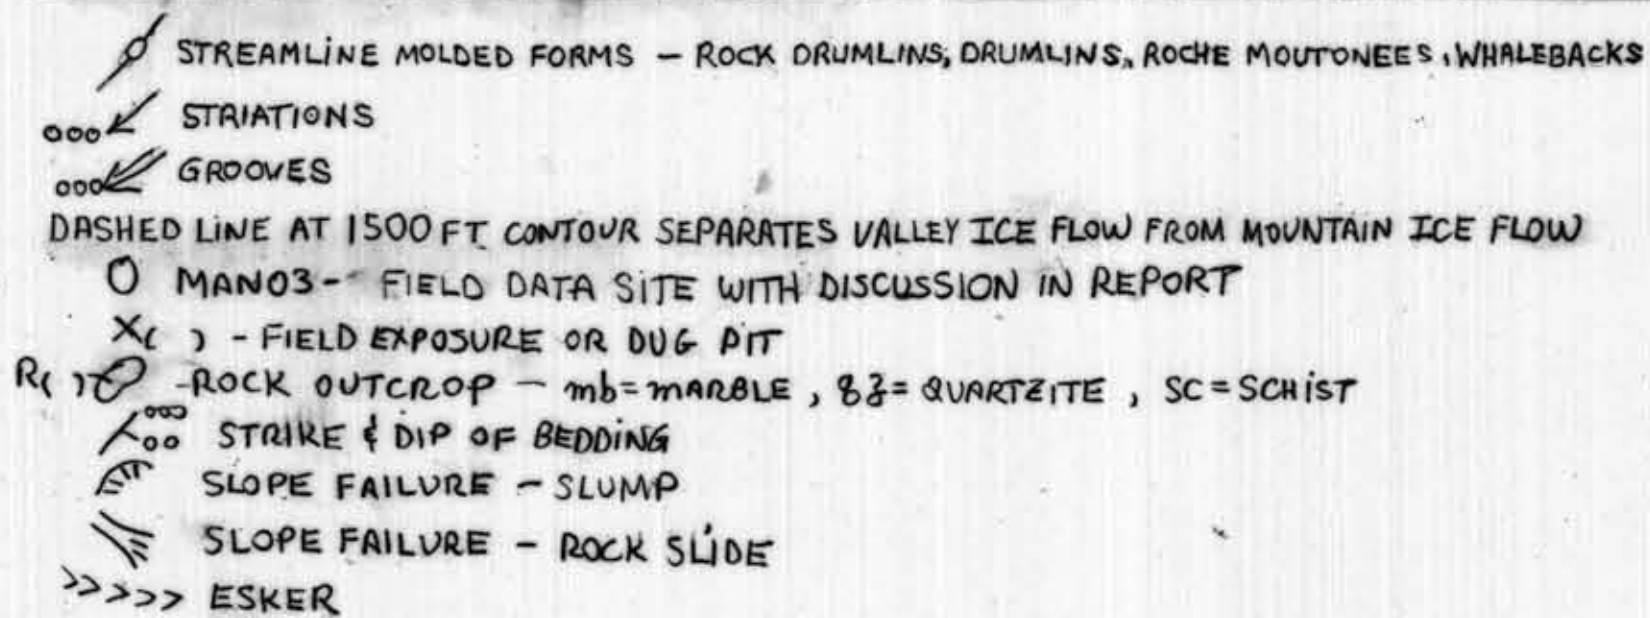 STREAMLINE MOLDED FORMS - ROCK DRUMLINS, DRUMLINS, ROCHE MOUTONEES, WHALEBACKS
000 STRIATIONS
000 GROOVES
DASHED LINE AT 1500 FT CONTOUR SEPARATES VALLEY ICE FLOW FROM MOUNTAIN ICE FLOW
O MAN03 -- FIELD DATA SITE WITH DISCUSSION IN REPORT
X( ) - FIELD EXPOSURE OR DUG PIT
R( ) - ROCK OUTCROP - mb=MARBLE, qz=QUARTZITE, SC=SCHIST
000 00 STRIKE & DIP OF BEDDING
SLOPE FAILURE - SLUMP
SLOPE FAILURE - ROCK SLIDE
>>>>> ESKER